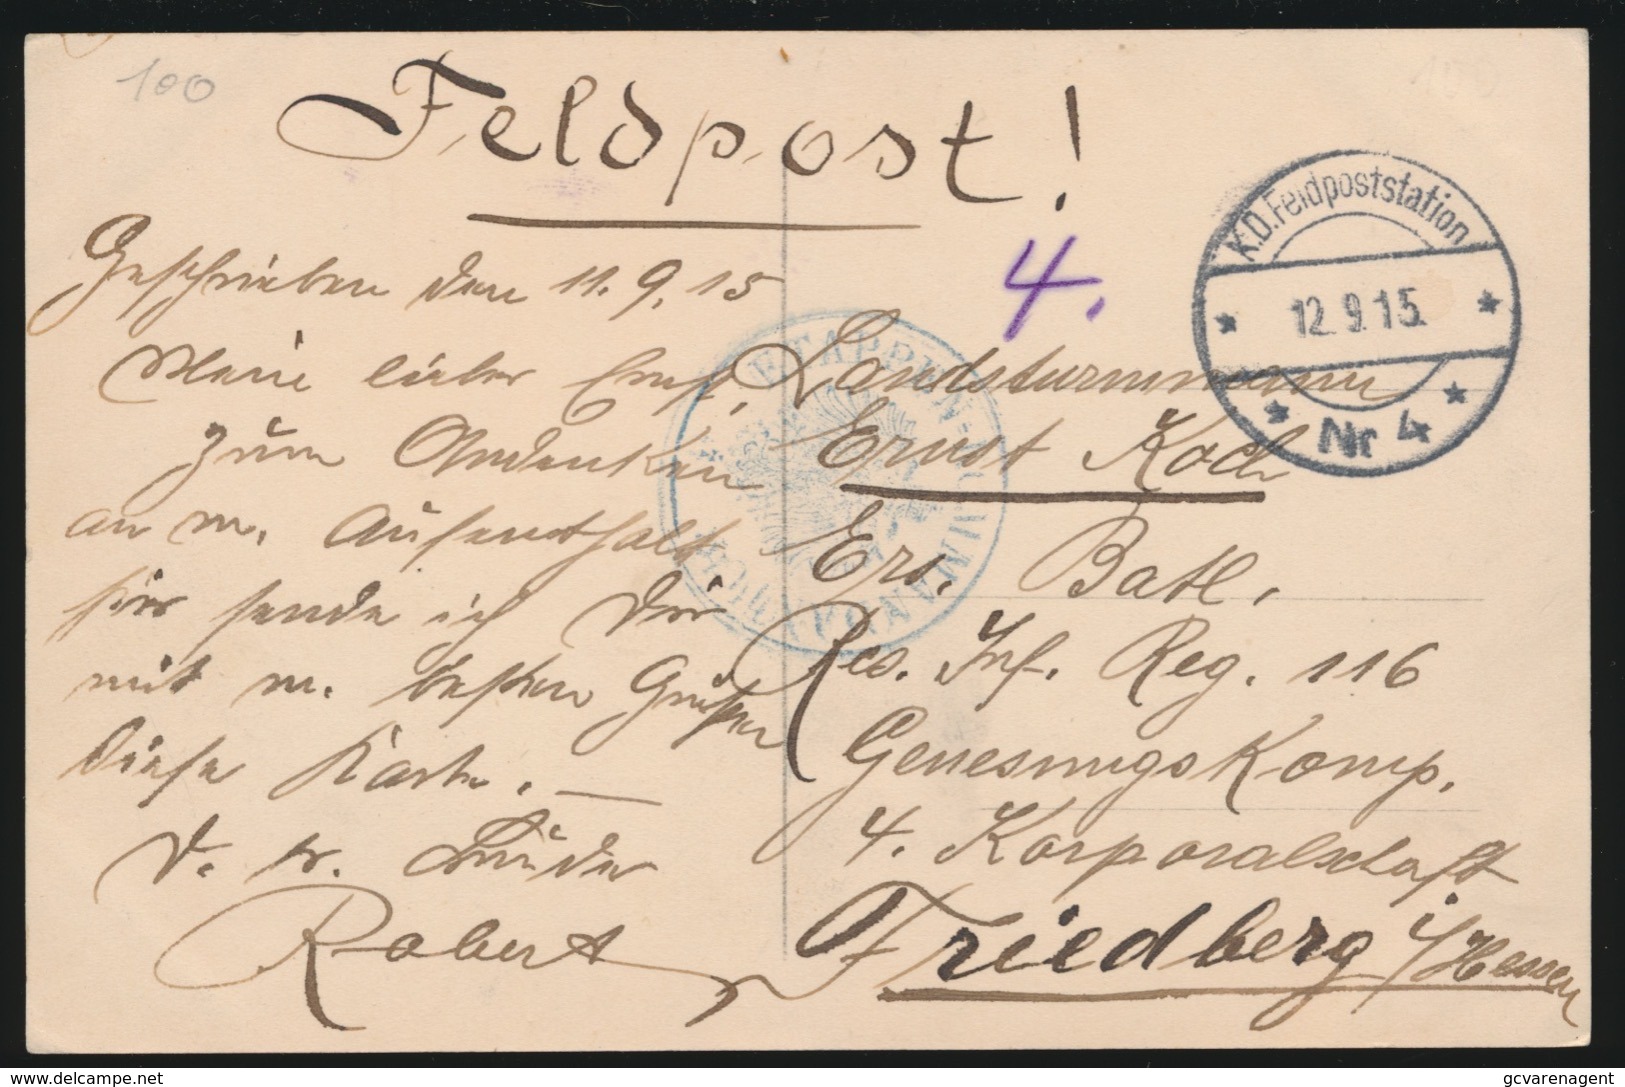 100
Feldpost!
4.
K.D. Feldpoststation
12.9.15.
Nr 4
Geschrieben den 11.9.15
Mein lieber Ernst,
zum Andenken
an m. Aufenthalt
hier sende ich Dir
mit m. besten Grüßen
diese Karte. —
D. tr. Bruder
Robert
ETAPPEN-KOMMANDANTUR
Landsturmmann
Ernst Koch
Ers. Batl.
Res. Inf. Reg. 116
Genesungskomp.
4. Korporalschaft
Friedberg i/Hessen
www.delcampe.net
gcvarenagent